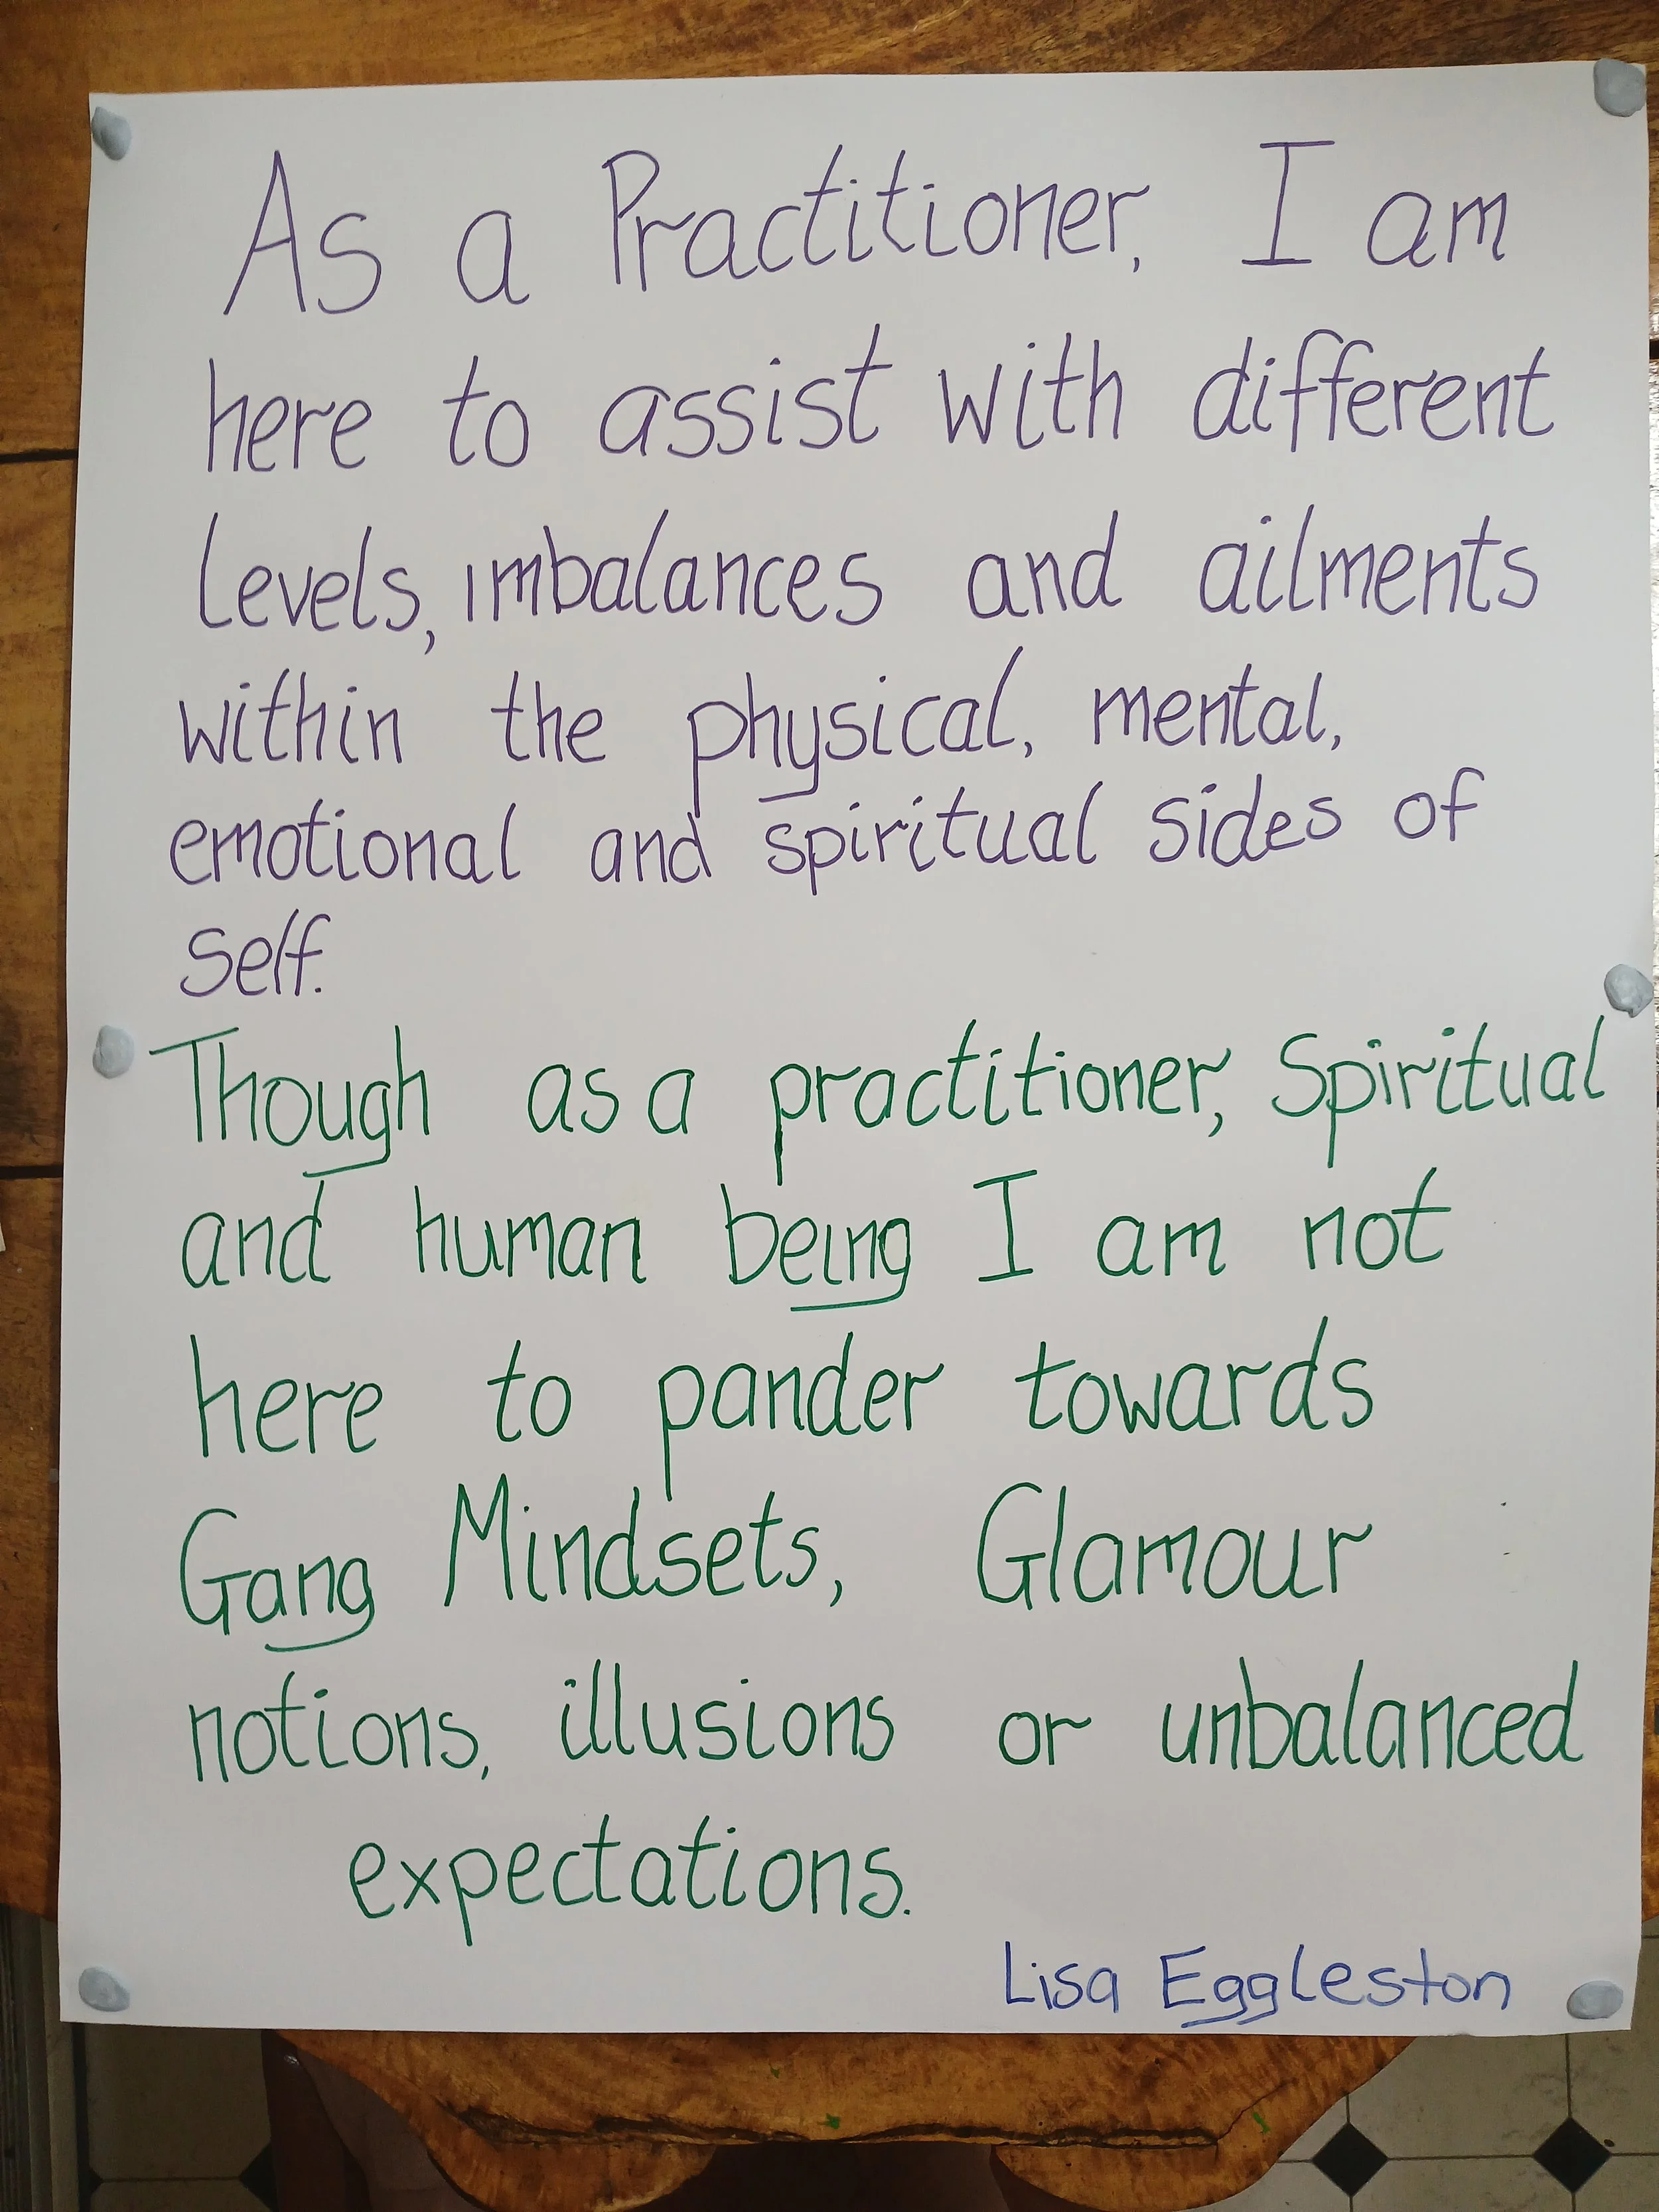 As a Practitioner, I am
here to assist with different
levels, imbalances and ailments
within the physical, mental,
emotional and spiritual sides of
self.
Though as a practitioner, Spiritual
and human being I am not
here to pander towards
Gang Mindsets, Glamour
notions, illusions or unbalanced
expectations.
Lisa Eggleston